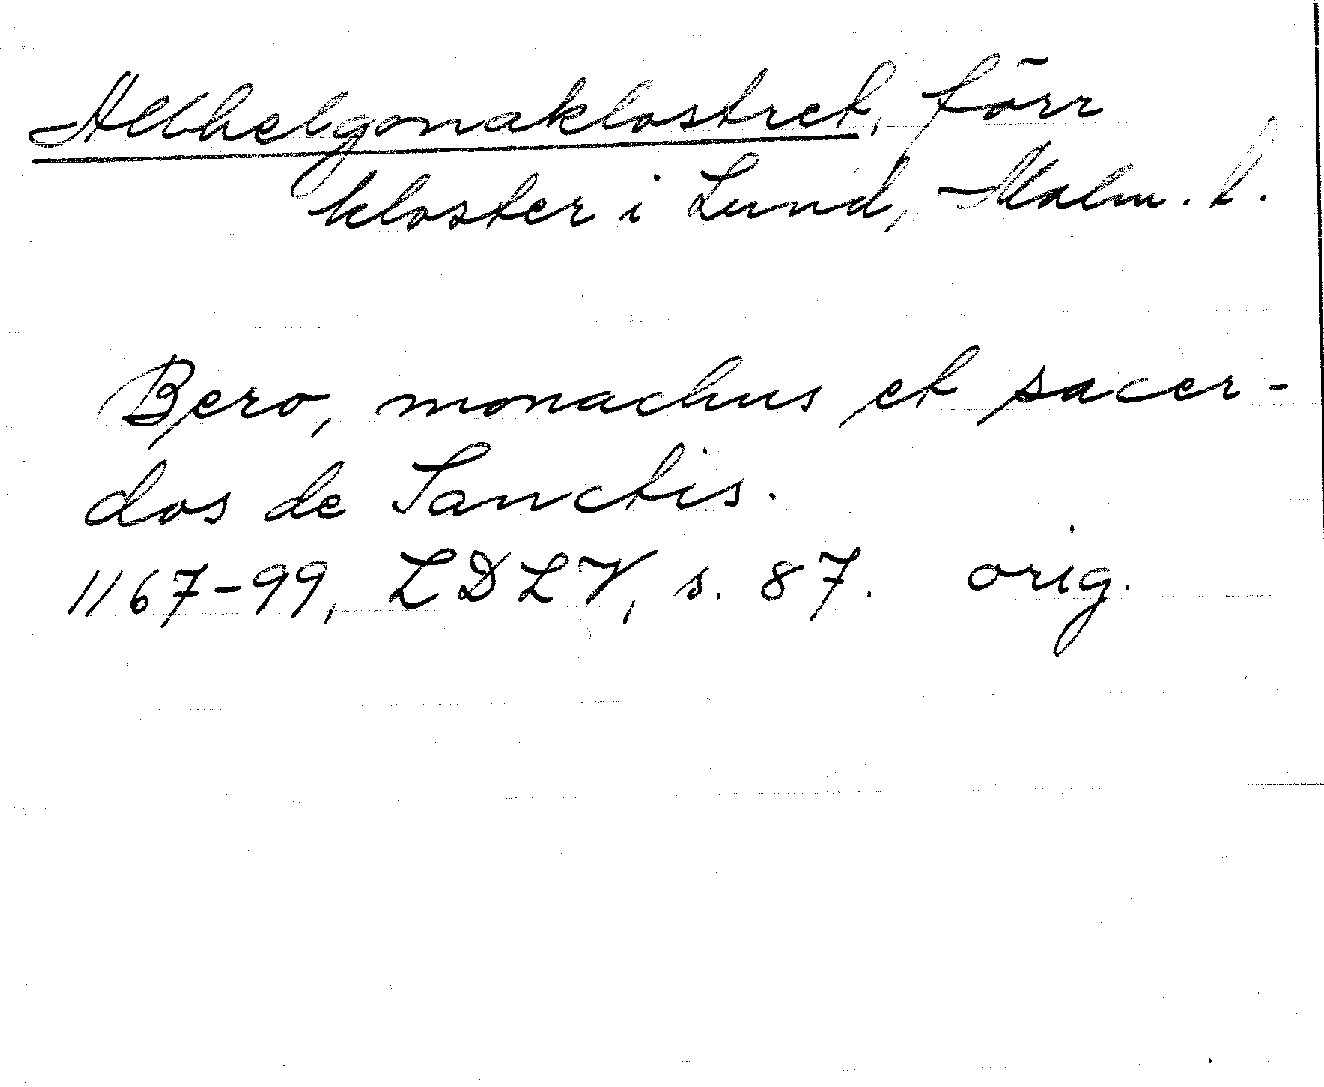 Allhelgonaklostret, förr
kloster i Lund, Malm. l.
Bero, monachus et sacer-
dos de Sanctis.
1167-99, LDLV, s. 87. orig.